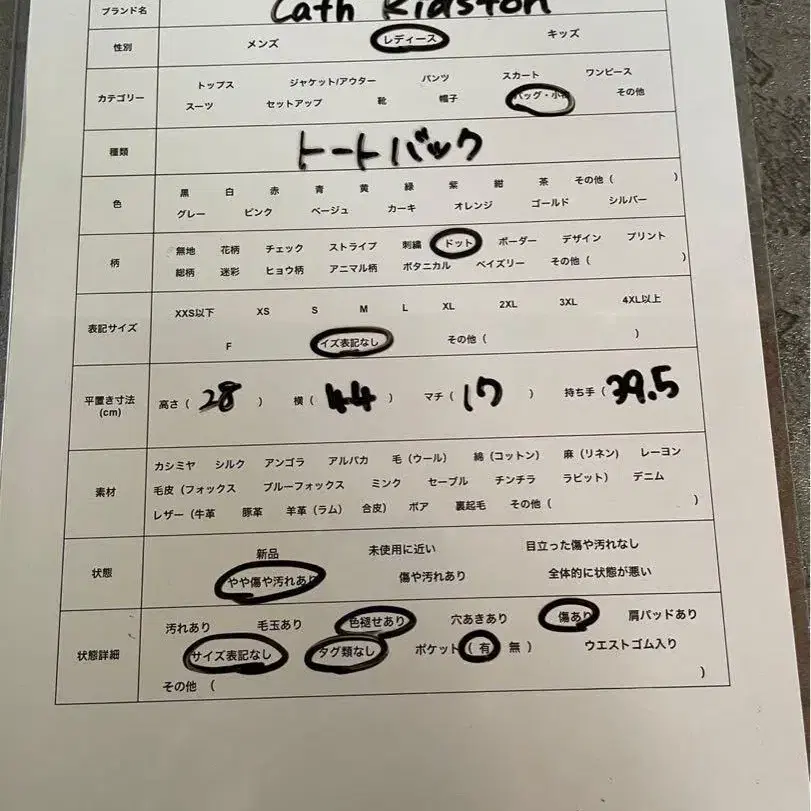 ブランド名 Cath Kidston
性別 メンズ レディース キッズ
カテゴリー トップス ジャケット/アウター パンツ スカート ワンピース
スーツ セットアップ 靴 帽子 バッグ・小物 その他
種類 トートバック
色 黒 白 赤 青 黄 緑 紫 紺 茶 その他( )
グレー ピンク ベージュ カーキ オレンジ ゴールド シルバー
柄 無地 花柄 チェック ストライプ 刺繍 ドット ボーダー デザイン プリント
総柄 迷彩 ヒョウ柄 アニマル柄 ボタニカル ペイズリー その他( )
表記サイズ XXS以下 XS S M L XL 2XL 3XL 4XL以上
F イズ表記なし その他( )
平置き寸法(cm) 高さ( 28 ) 横( 44 ) マチ( 17 ) 持ち手( 39.5
素材 カシミヤ シルク アンゴラ アルパカ 毛(ウール) 綿(コットン) 麻(リネン) レーヨン
毛皮(フォックス ブルーフォックス ミンク セーブル チンチラ ラビット) デニム
レザー(牛革 豚革 羊革(ラム) 合皮) ボア 裏起毛 その他( )
状態 新品 未使用に近い 目立った傷や汚れなし
やや傷や汚れあり 傷や汚れあり 全体的に状態が悪い
状態詳細 汚れあり 毛玉あり 色褪せあり 穴あきあり 傷あり 肩パッドあり
サイズ表記なし タグ類なし ポケット( 有 無 ) ウエストゴム入り
その他 ( )